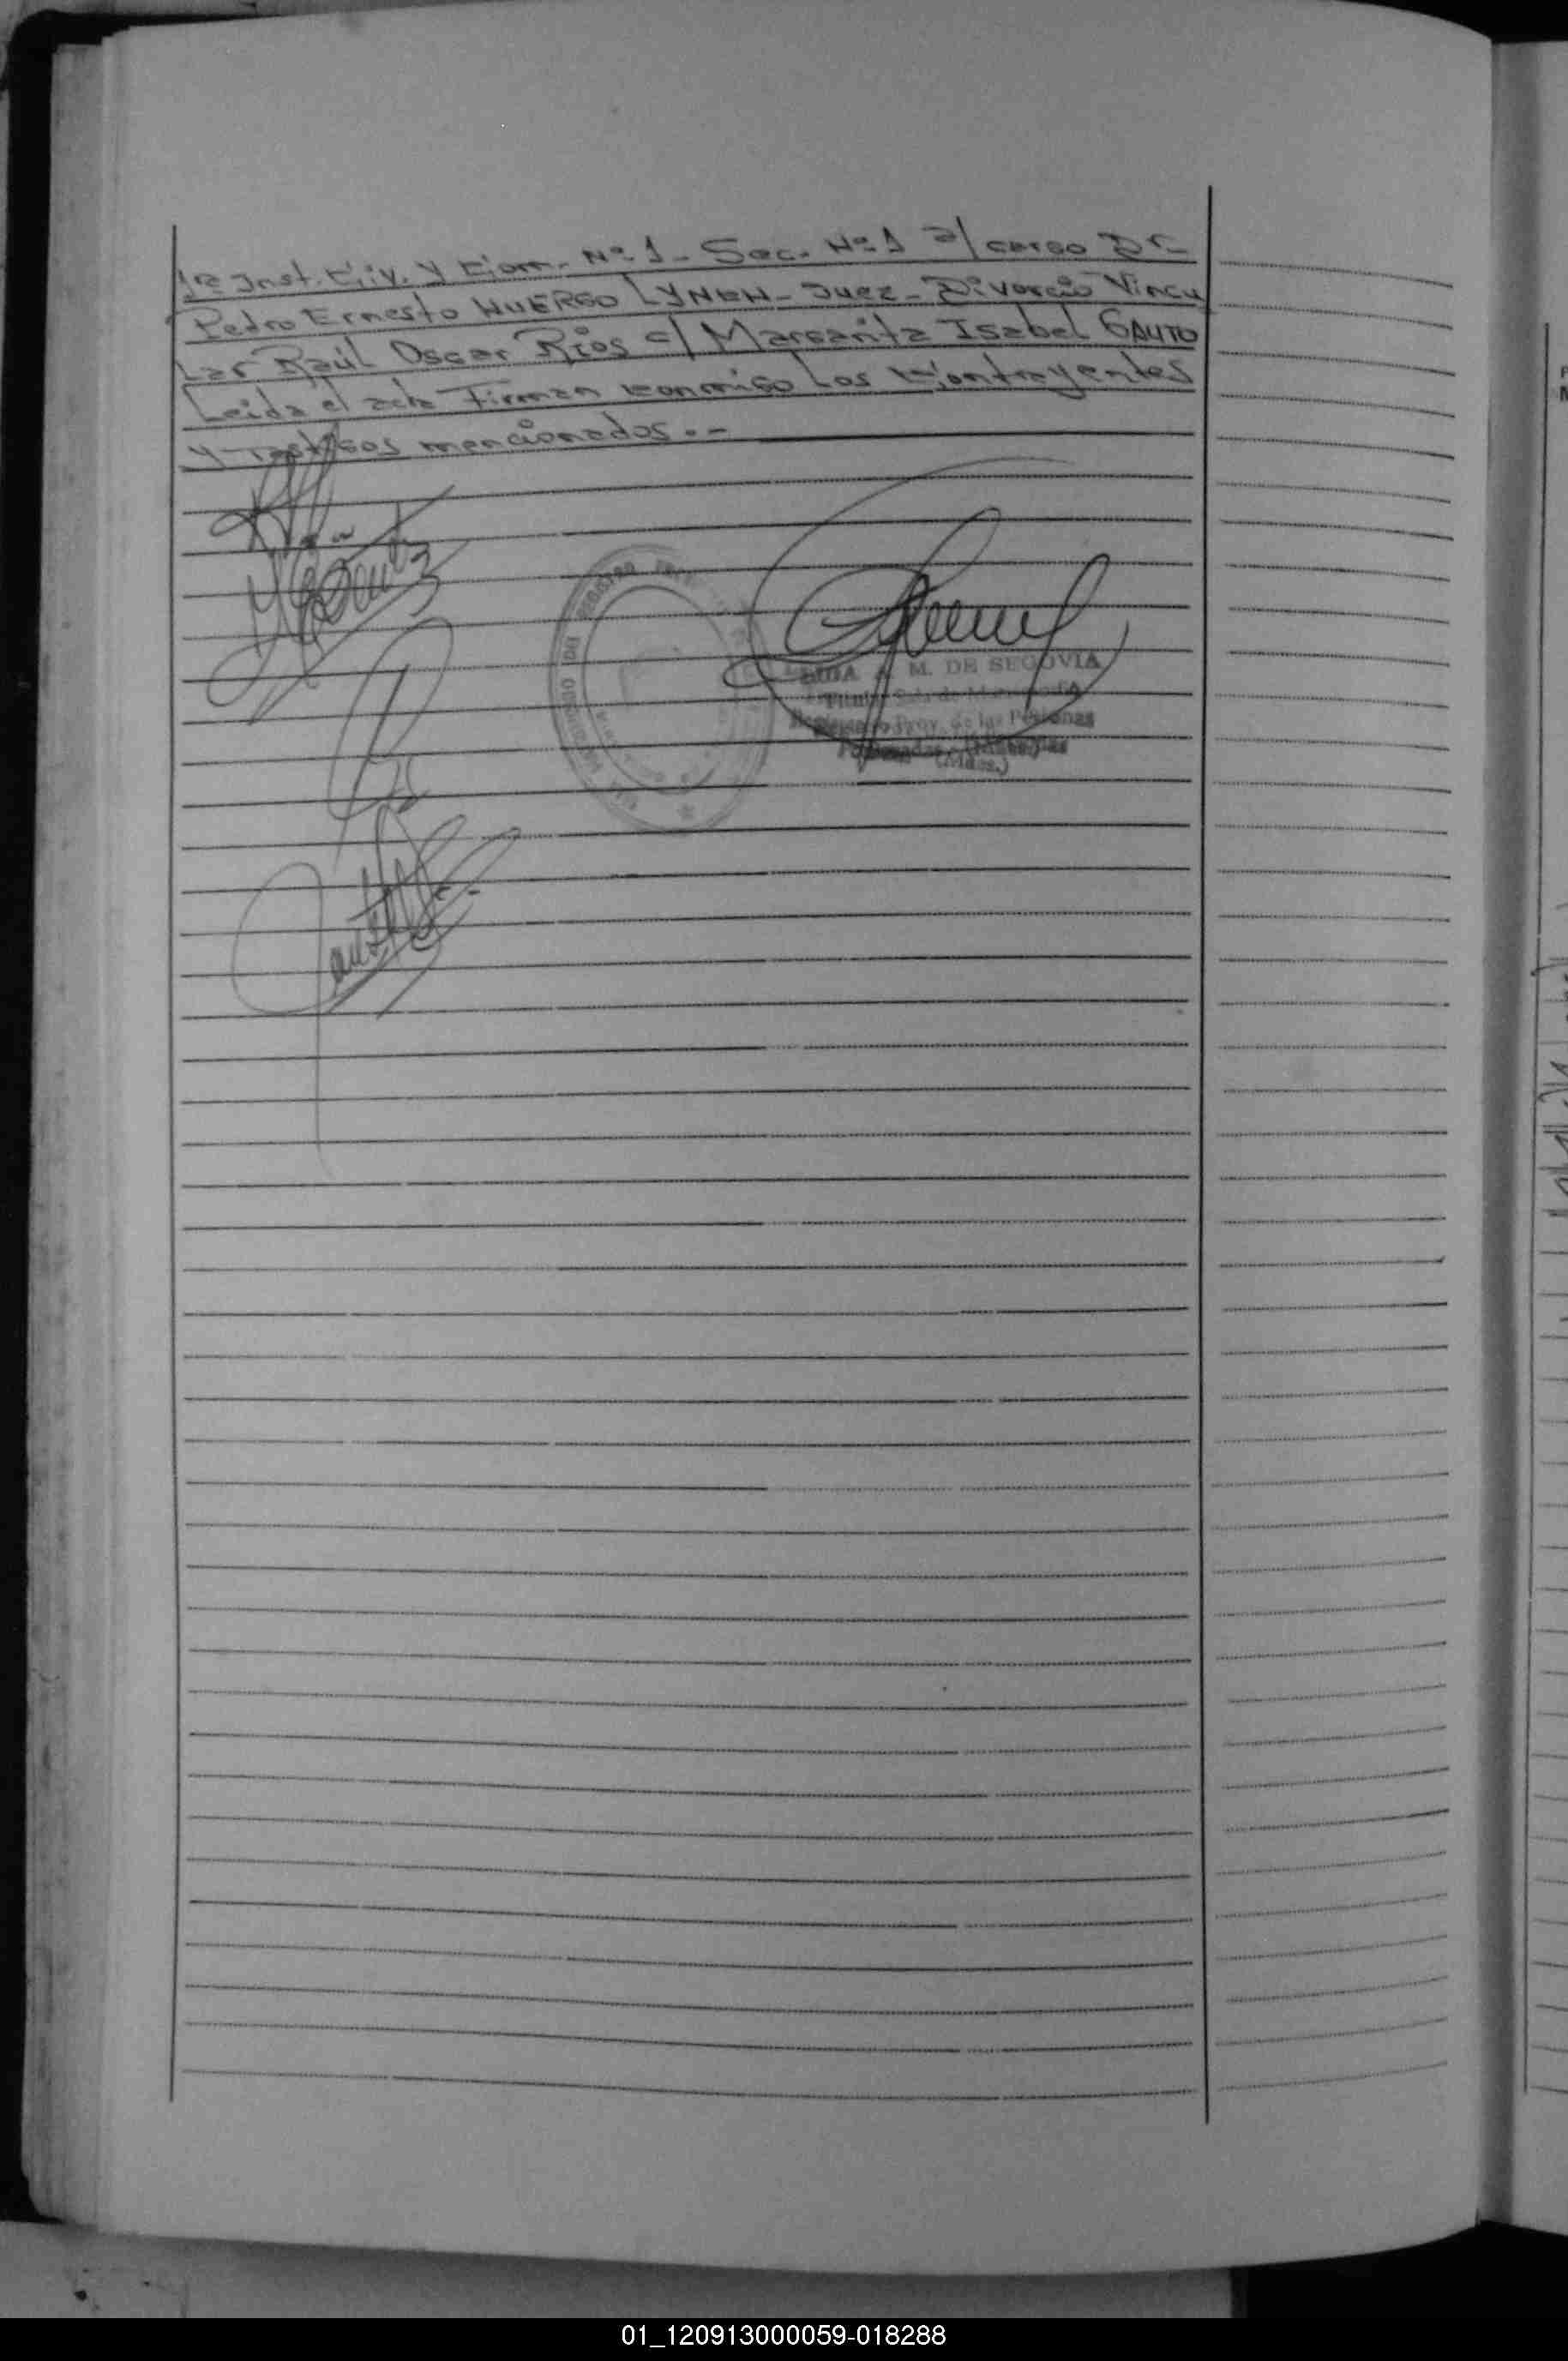 1ra Inst. Civ. y Com. Nº 1 - Sec. Nº 1 a/ cargo Dr-
Pedro Ernesto HUERGO LYNCH - Juez - Divorcio Vincu
Lar Raúl Oscar Ríos c/ Margarita Isabel GAUTO
Leida el acta Firman conmigo Los Contrayentes
y Testigos mencionados. -
M. DE SEGOVIA
Titular Sala de
Prov. de las Personas
Posadas (Misiones)
(Mnes.)
01_120913000059-018288